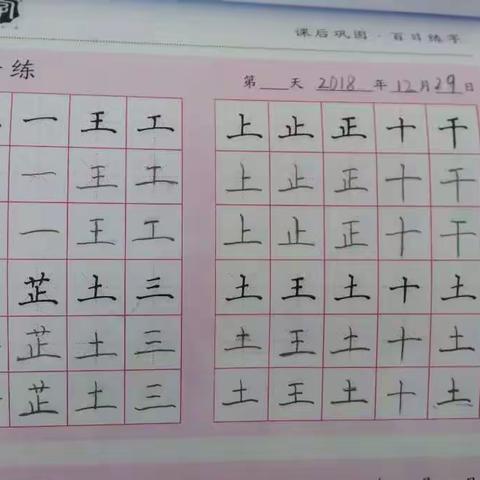 课后巩固·百日练字
练
第 天 2018 年 12月29日
一 王 工 上 止 正 十 干
一 王 工 上 止 正 十 干
一 王 工 上 止 正 十 干
芷 土 三 土 王 土 十 土
芷 土 三 土 王 土 十 土
芷 土 三 土 王 土 十 土